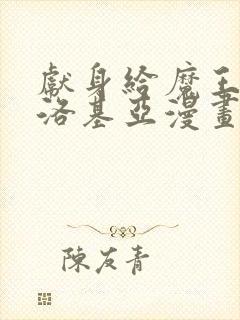 獻身給魔王
洛基亞漫畫
陳友青